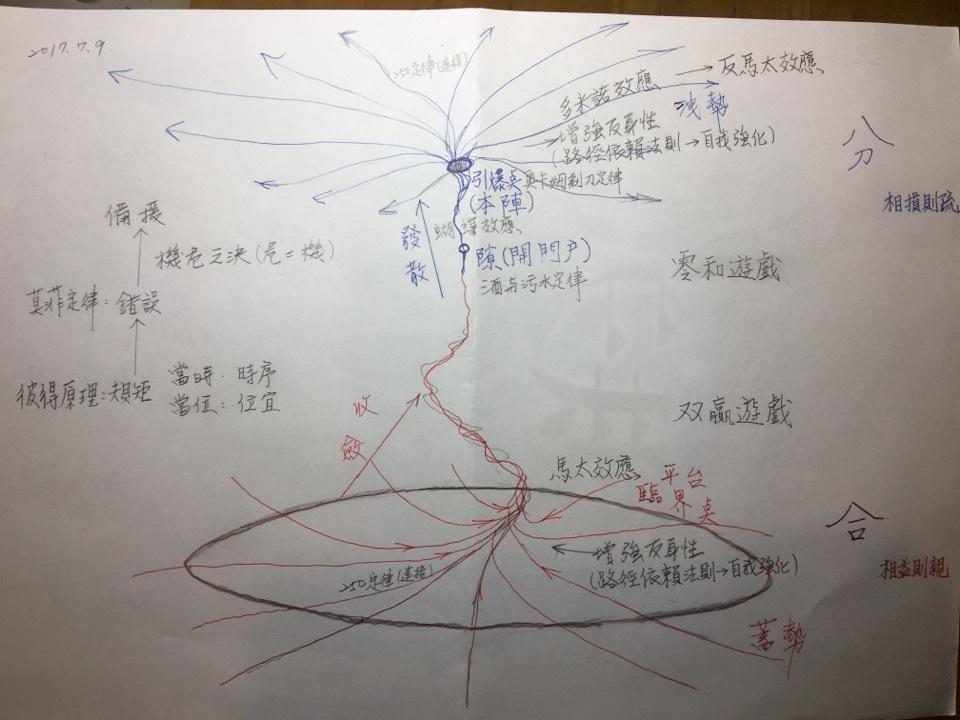 2017.7.9
250定律(連接)
多米諾效應 → 反馬太效應
洩勢
增強反身性
(路徑依賴法則→自我強化)
分
引爆點 奧卡姆剃刀定律
(本陣)
相損則疏
備援
發散
蝴蝶效應
機危之決(危=機)
隙(開門戶)
零和遊戲
三酒与污水定律
莫菲定律:錯誤
彼得原理:規矩
當時:時序
當位:位宜
收斂
双贏遊戲
馬太效應
平台
臨界點
合
增強反身性
(路徑依賴法則→自我強化)
250定律(連接)
相益則親
蓄勢